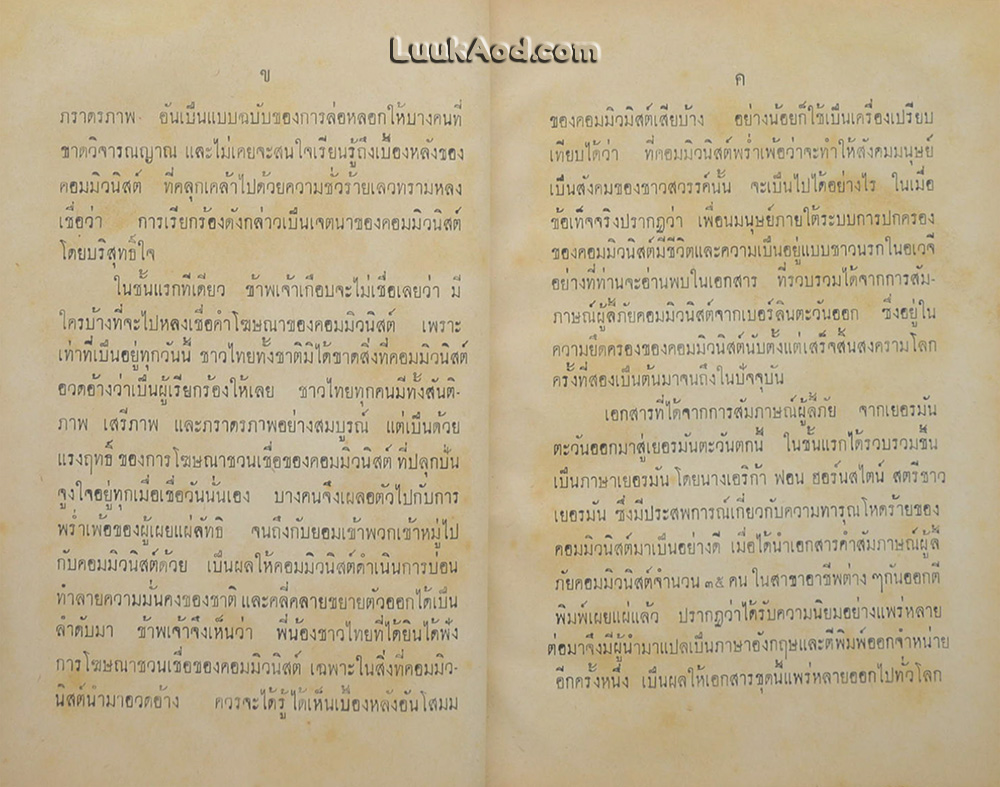 LuukAod.com
ข
ภราดรภาพ อันเป็นแบบฉบับของการล่อหลอกให้บางคนที่
ขาดวิจารณญาณ และไม่เคยจะสนใจเรียนรู้ถึงเบื้องหลังของ
คอมมิวนิสต์ ที่คลุกเคล้าไปด้วยความชั่วร้ายเลวทรามหลง
เชื่อว่า การเรียกร้องดังกล่าวเป็นเจตนาของคอมมิวนิสต์
โดยบริสุทธิ์ใจ
ในชั้นแรกทีเดียว ข้าพเจ้าเกือบจะไม่เชื่อเลยว่า มี
ใครบ้างที่จะไปหลงเชื่อคำโฆษณาของคอมมิวนิสต์ เพราะ
เท่าที่เป็นอยู่ทุกวันนี้ ชาวไทยทั้งชาติมิได้ขาดสิ่งที่คอมมิวนิสต์
อวดอ้างว่าเป็นผู้เรียกร้องให้เลย ชาวไทยทุกคนมีทั้งสันติ-
ภาพ เสรีภาพ และภราดรภาพอย่างสมบูรณ์ แต่เป็นด้วย
แรงฤทธิ์ ของการโฆษณาชวนเชื่อของคอมมิวนิสต์ ที่ปลุกปั่น
จูงใจอยู่ทุกเมื่อเชื่อวันนั้นเอง บางคนจึงเผลอตัวไปกับการ
พร่ำเพ้อของผู้เผยแผ่ลัทธิ จนถึงกับยอมเข้าพวกเข้าหมู่ไป
กับคอมมิวนิสต์ด้วย เป็นผลให้คอมมิวนิสต์ดำเนินการบ่อน
ทำลายความมั่นคงของชาติ และคลี่คลายขยายตัวออกได้เป็น
ลำดับมา ข้าพเจ้าจึงเห็นว่า พี่น้องชาวไทยที่ได้ยินได้ฟัง
การโฆษณาชวนเชื่อของคอมมิวนิสต์ เฉพาะในสิ่งที่คอมมิว-
นิสต์นำมาอวดอ้าง ควรจะได้รู้ ได้เห็นเบื้องหลังอันโสมม
ค
ของคอมมิวมิสต์เสียบ้าง อย่างน้อยก็ใช้เป็นเครื่องเปรียบ
เทียบได้ว่า ที่คอมมิวนิสต์พร่ำเพ้อว่าจะทำให้สังคมมนุษย์
เป็นสังคมของชาวสวรรค์นั้น จะเป็นไปได้อย่างไร ในเมื่อ
ข้อเท็จจริงปรากฏว่า เพื่อนมนุษย์ภายใต้ระบบการปกครอง
ของคอมมิวนิสต์มีชีวิตและความเป็นอยู่แบบชาวนรกในอเวจี
อย่างที่ท่านจะอ่านพบในเอกสาร ที่รวบรวมได้จากการสัม-
ภาษณ์ผู้ลี้ภัยคอมมิวนิสต์จากเบอร์ลินตะวันออก ซึ่งอยู่ใน
ความยึดครองของคอมมิวนิสต์นับตั้งแต่เสร็จสิ้นสงครามโลก
ครั้งที่สองเป็นต้นมาจนถึงในปัจจุบัน
เอกสารที่ได้จากการสัมภาษณ์ผู้ลี้ภัย จากเยอรมัน
ตะวันออกมาสู่เยอรมันตะวันตกนี้ ในชั้นแรกได้รวบรวมขึ้น
เป็นภาษาเยอรมัน โดยนางเอริก้า ฟอน ฮอร์นสไตน์ สตรีชาว
เยอรมัน ซึ่งมีประสพการณ์เกี่ยวกับความทารุณโหดร้ายของ
คอมมิวนิสต์มาเป็นอย่างดี เมื่อได้นำเอกสารคำสัมภาษณ์ผู้ลี้
ภัยคอมมิวนิสต์จำนวน ๓๕ คน ในสาขาอาชีพต่าง ๆกันออกตี
พิมพ์เผยแผ่แล้ว ปรากฏว่าได้รับความนิยมอย่างแพร่หลาย
ต่อมาจึงมีผู้นำมาแปลเป็นภาษาอังกฤษและตีพิมพ์ออกจำหน่าย
อีกครั้งหนึ่ง เป็นผลให้เอกสารชุดนี้แพร่หลายออกไปทั่วโลก